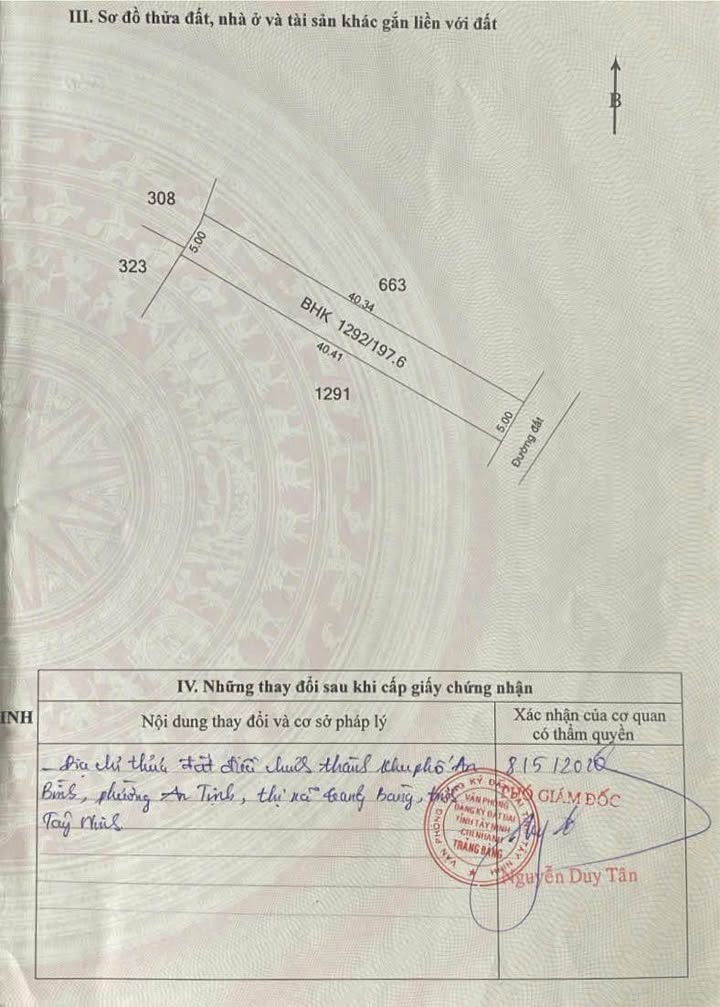 III. Sơ đồ thửa đất, nhà ở và tài sản khác gắn liền với đất
B
308
5.00
323
663
40.34
BHK 1292/197.6
40.41
1291
5.00
Đường đất
IV. Những thay đổi sau khi cấp giấy chứng nhận
INH
Nội dung thay đổi và cơ sở pháp lý
Xác nhận của cơ quan
có thẩm quyền
- Địa chỉ thửa đất điều chỉnh thành khu phố An
Bình, phường An Tịnh, thị xã Trảng Bàng, tỉnh
Tây Ninh
8/5/2020
PHÓ GIÁM ĐỐC
VĂN PHÒNG
ĐĂNG KÝ ĐẤT ĐAI
TỈNH TÂY NINH
CHI NHÁNH
TRẢNG BÀNG
Nguyễn Duy Tân